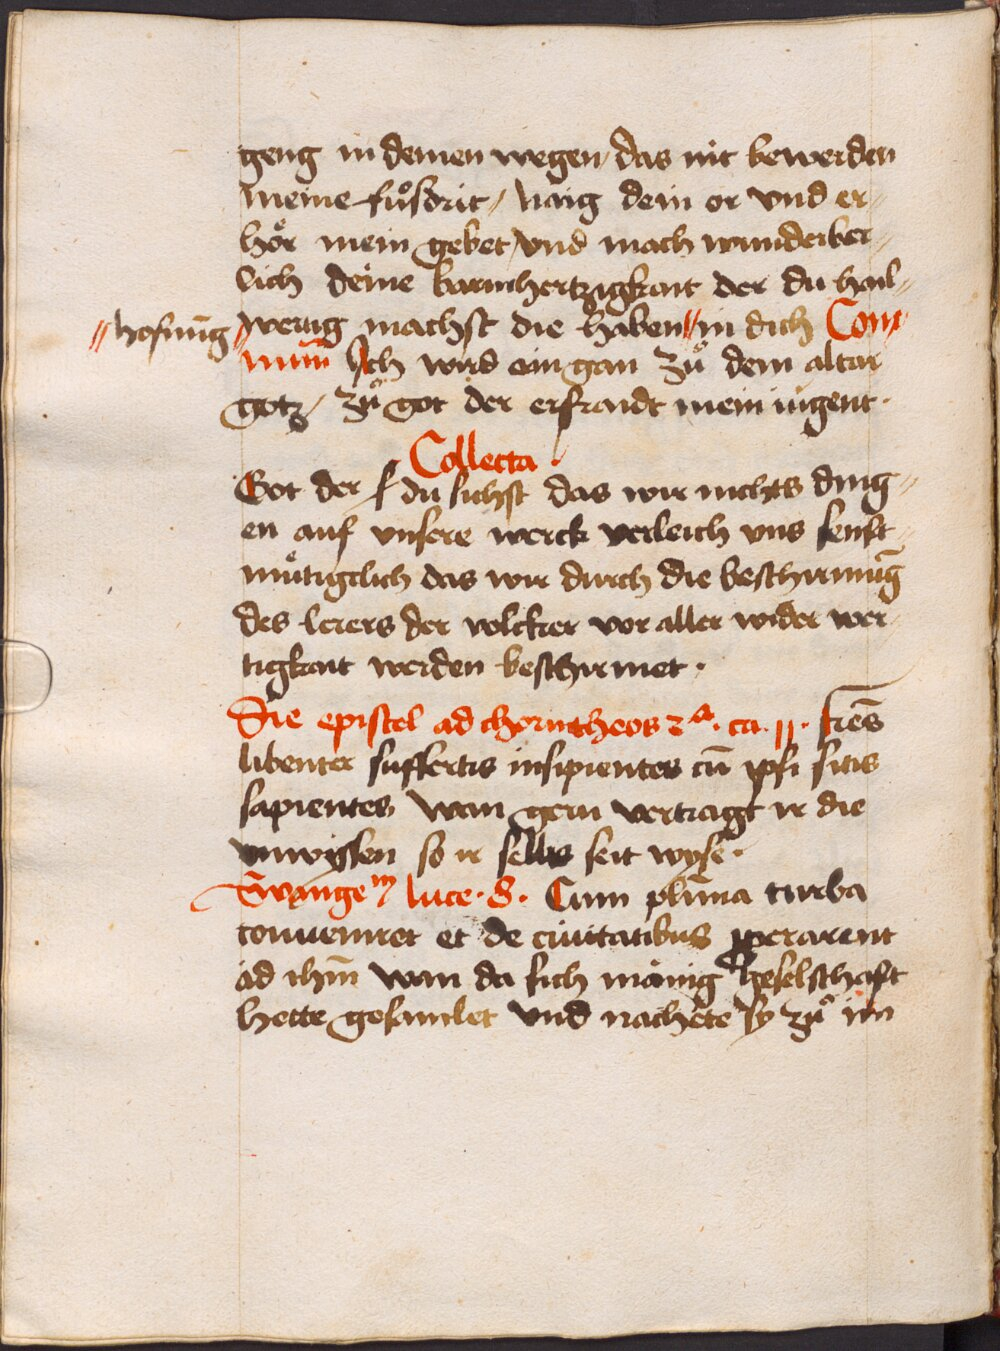 geng in deinen wegen / das nit bewerden
meine fuͦsdrit / naig dein or vnd er⸗
hoͤr mein gebet / vnd mach wunderber⸗
lich deine barmhertzigkait der du hail⸗
// hofnūg // wertig machst die haben // in dich Com⸗
munio Ich wird ein gan zuͦ dem altar
gotz / zuͦ got der erfraidt mein iugent ·
Collecta ·
Got der du sichst das wir nichts ding⸗
en auf vnsere werck verleich vns senft
muͤtigclich das wir durch die beschirmūg
des lerers der volcker vor aller wider wer⸗
tigkait werden beschirmet ·
Die epistel ad chorintheos 2ª · ca · 11 · fr̄es
libenter suffertis insipientes cū ipsi sitis
sapientes wan gern vertragt ir die
vnwyssen so ir selbs seit wyse ·
Ewangeᵐ luce · 8 · Cum plūma turba
conueniret et de ciuitatibus properarent
ad ihm̄ wan da sich mänig geselschaft
hette gesamlet vnd nachete sy zuͦ im